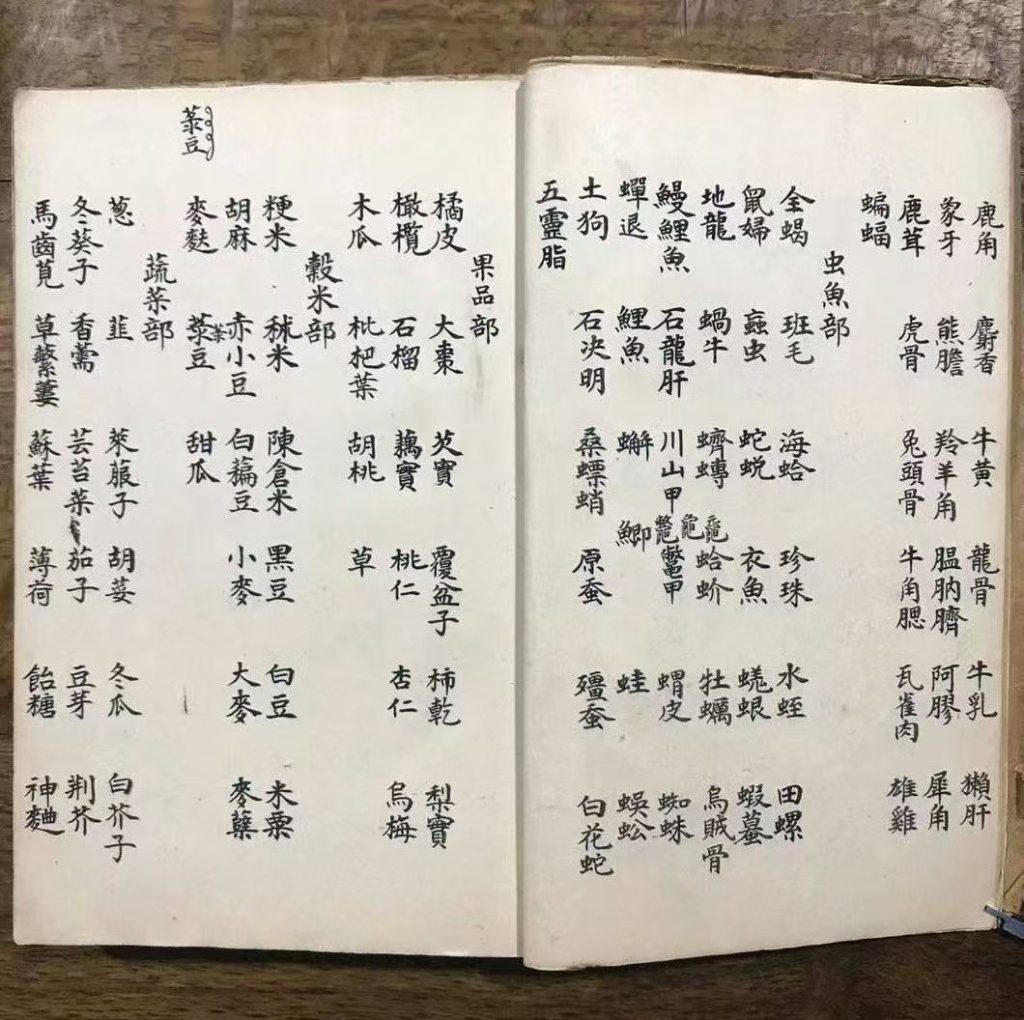 鹿角 麝香 牛黃 龍骨 牛乳 獺肝
象牙 熊膽 羚羊角 膃肭臍 阿膠 犀角
鹿茸 虎骨 兎頭骨 牛角腮 瓦雀肉 雄雞
蝙蝠
虫魚部
全蝎 班毛 海蛤 珍珠 水蛭 田螺
鼠婦 蝱虫 蛇蛻 衣魚 蜣蜋 蝦蟇
地龍 蝸牛 蠐螬 蛤蚧 牡蠣 烏賊骨
鰻鯉魚 石龍肝 川山甲 鱉甲 蝟皮 蜘蛛
蟬退 鯉魚 蠏 鯽 蛙 蜈蚣
土狗 石决明 桑螵蛸 原蚕 殭蚕 白花蛇
五靈脂
果品部
橘皮 大棗 芡實 覆盆子 柿乾 梨實
橄欖 石榴 藕實 桃仁 杏仁 烏梅
木瓜 枇杷葉 胡桃 草
穀米部
粳米 秫米 陳倉米 黑豆 白豆 米粟
胡麻 赤小豆 白藊豆 小麥 大麥 麥蘗
麥麩 菉豆 甜瓜
菉豆
蔬菜部
葱 韭 萊菔子 胡荽 冬瓜 白芥子
冬葵子 香薷 芸苔菜 茄子 豆芽 荆芥
馬齒莧 草蘩蔞 蘇葉 薄荷 飴糖 神麯